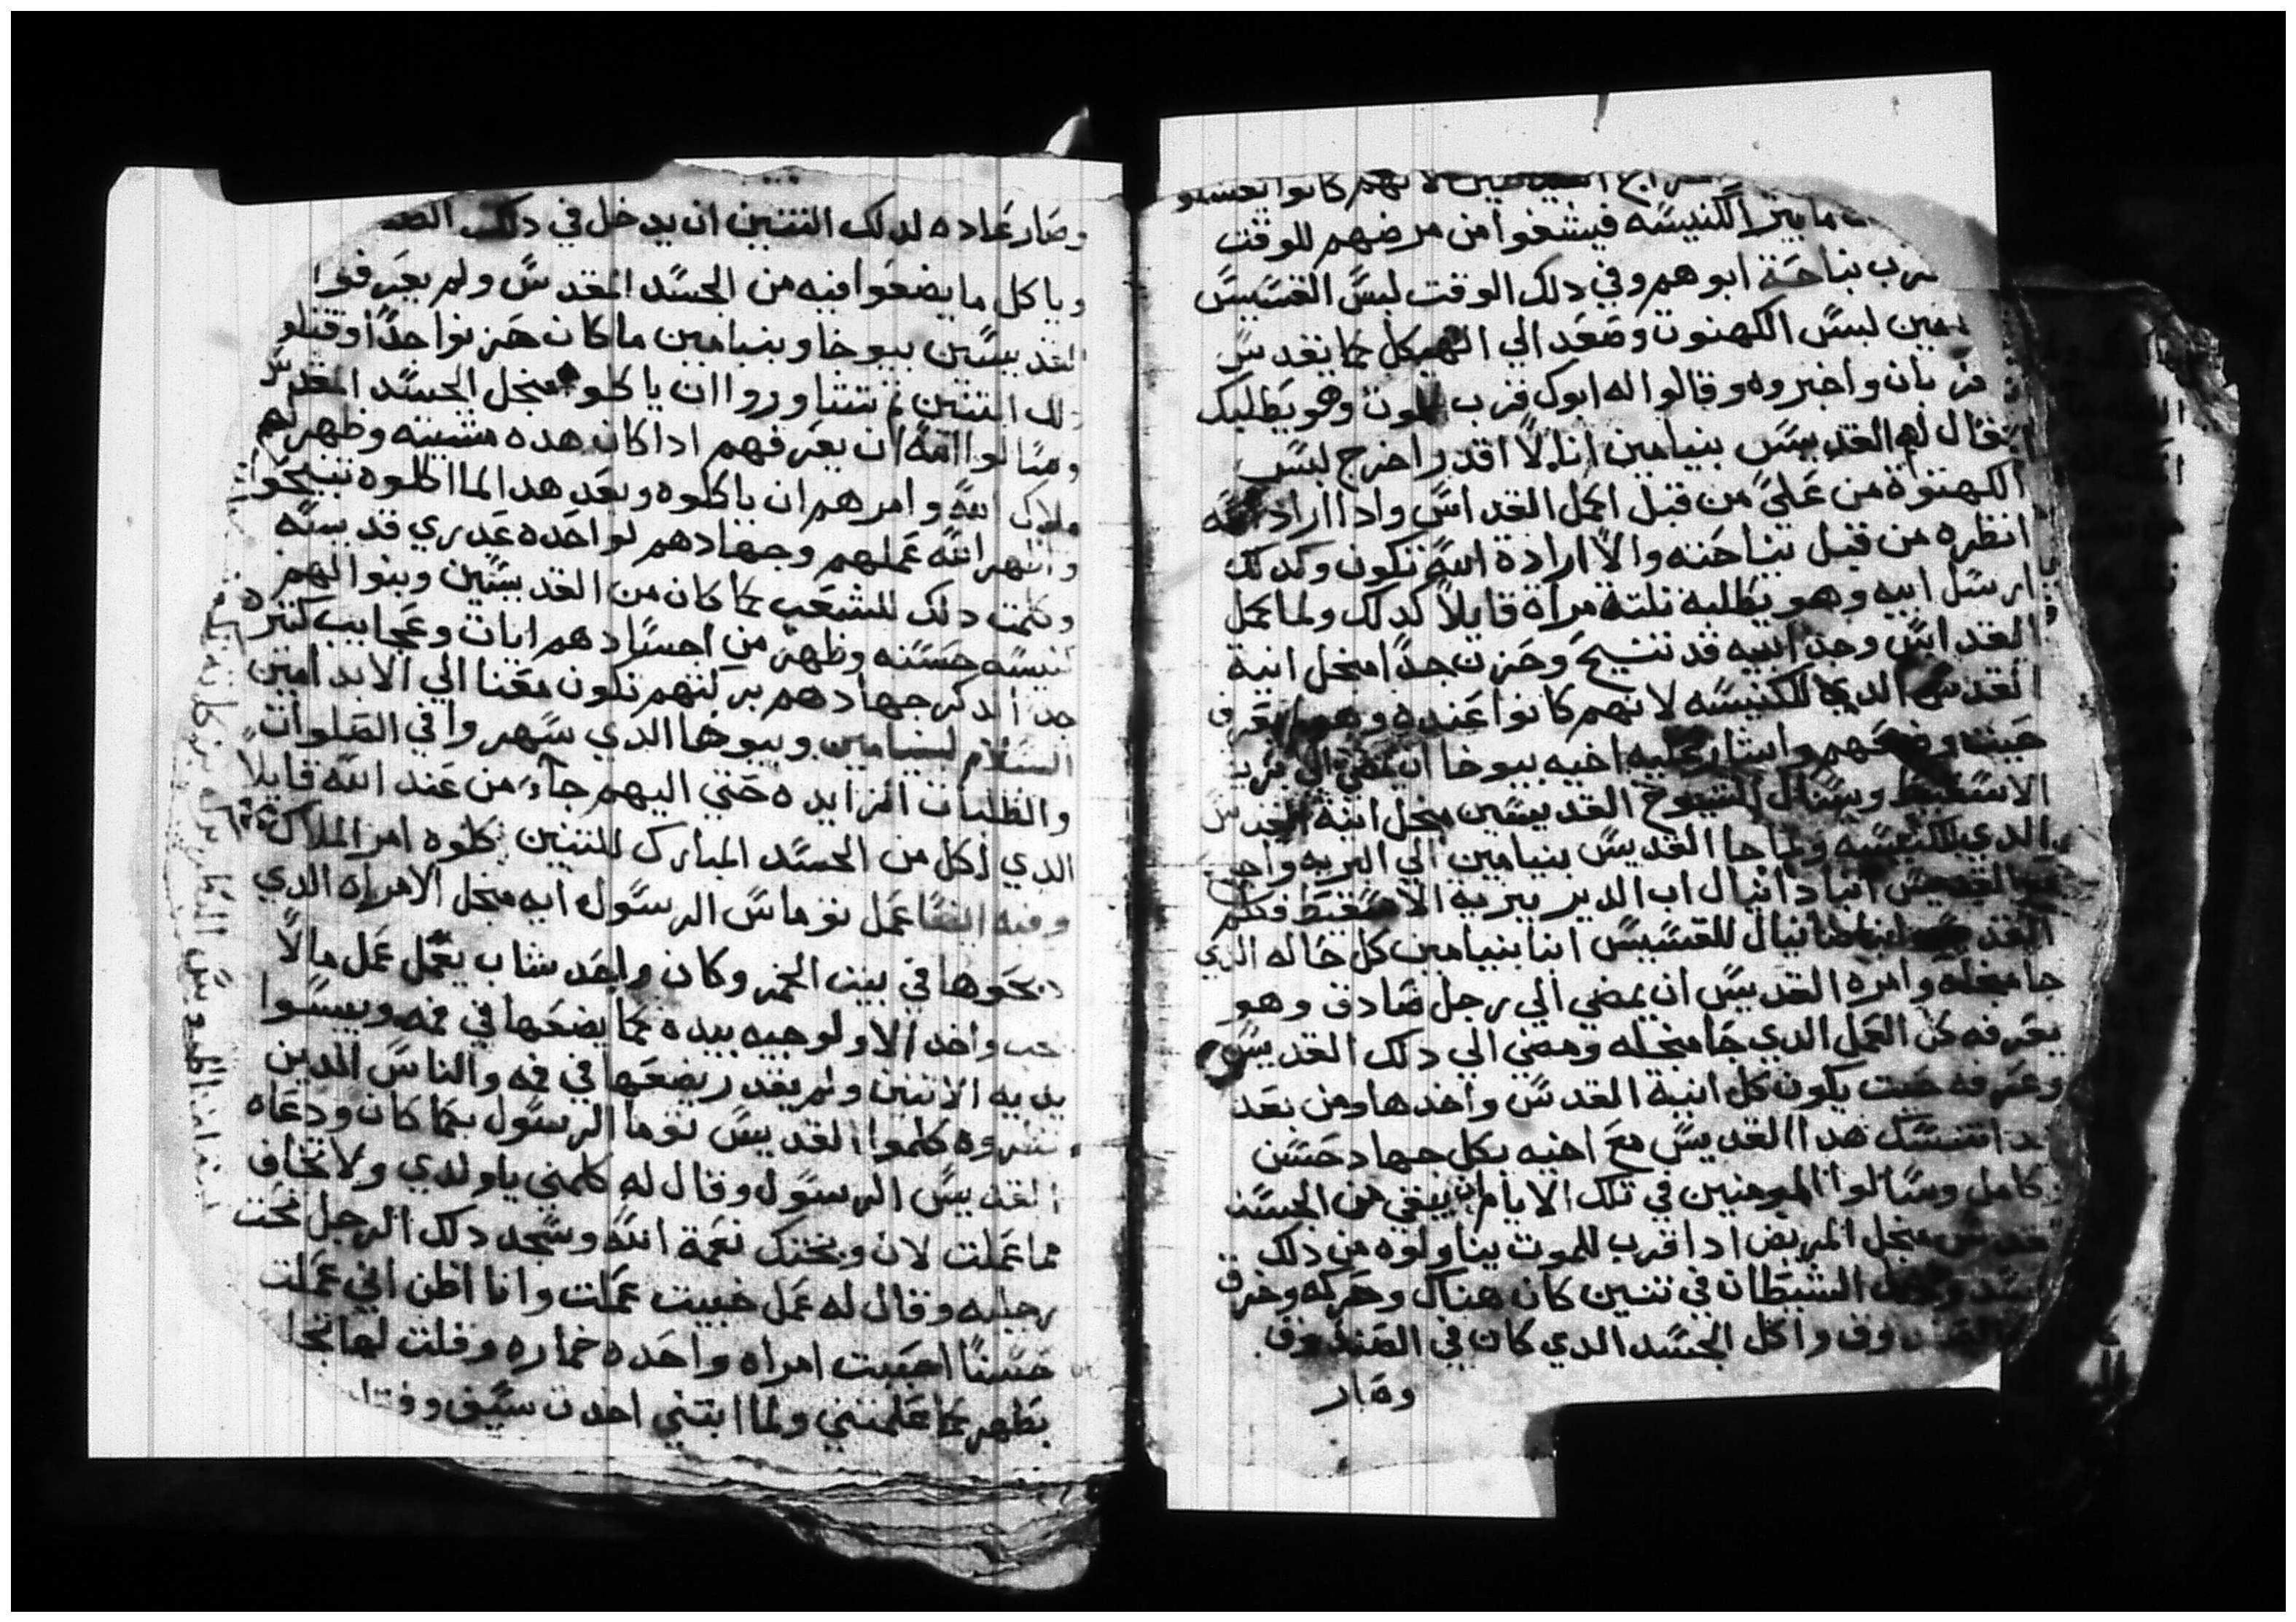 لانهم كانوا يغسلو
ما بير الكنيسه فيشفوا من مرضهم للوقت
بنياحة ابوهم وفي دلك الوقت لبسَ القسَيسَ
لبسَ الكهنوت وصَعَد الي الهيكل كما يقدسَ
واخبروه وقالوا له ابوك قرب للموت وهو يطَلبك
فقال لهم القديسَ بنيامين انا لا اقدر اخرج لبسَ
الكهنوة من عَليَ من قبل اكمل القداسَ وادا اراد الله
انظره من قبل نياحَته والا ارادة الله تكون وكدلك
ارسَل ابيه وهو يطَلبه تلتة مراة قايلاً كدلك ولما كمل
القداسَ وجد ابيه قد تنيحَ وحَزن جداً منجل انية
القدسَ الدي للكنيسَه لانهم كانوا عَنده
واشار عليه اخيه بيوخا ان يمضي الي برية
الاسَقيط ويسَال الشيوخ القديسَين منجل انية القدسَ
الدي للكنيسَه ولما جا القديسَ بنيامين الي البريه
القديسَ انبا دانيال اب الدير ببرية الاسَقيط فكلم
دانيال للقسَيسَ انبا بنيامين كل حَاله الدي
جا منجله وامره القديسَ ان يمضي الي رجل صَادق وهو
يعَرفه كل العَمل الدي جَا منجله ومضي الي دلك القديسَ
وعَرفه حَيت يكون كل انية القدسَ واخدها ومن بعَد
هدا القديسَ معَ اخيه بكل جهاد حَسَن
كامل وسَالوا المومنين في تلك الايام ان يبقي من الجسَد
منجل المريض ادا قرب للموت يناولوه من دلك
الشيطَان في تنين كان هناك وحَركه وخرق
واكل الجسَد الدي كان في الصَندوق
وصَار
وصَار عَاده لدلك التنين ان يدخل في دلك
وياكل ما يضعَوا فيه من الجسَد المقدسَ ولم يعَرفوا
القديسَين بيوخا وبنيامين ما كان حَزنوا جداً وقتلو
دلك التنين تم تشاوروا ان ياكلوه منجل الجسَد المقدسَ
وسَالوا الله ان يعَرفهم ادا كان هده مشيته وظهر لهم
ملاك الله وامرهم ان ياكلوه وبعَد هدا لما اكلوه تنيحَوا
واظهر الله عَملهم وجهادهم لواحَده عَدري قديسَه
وكلمت دلك للشعَب كما كان من القديسَين وبنوا لهم
كنيسَه حَسَنه وظهر من اجسَادهم ايات وعَجايب كتيره
جداً لدكر جهادهم بركتهم تكون معَنا الي الابد امين
السَلام لبنيامين وبيوخا الدي سَهروا في الصَلوات
والطَلبات الزايده حَتي اليهم جاَء من عَند الله قايلاً
الدي اكل من الجسَد المبارك للتنين كلوه امر الملاك
وفيه ايضاً عَمل توماسَ الرسَول ايه منجل الامراه الدي
دبحَوها في بيت الخمر وكان واحَد شاب يعَمل عَمل مالاً
يحب واخد الاولوجيه بيده كما يضعَها في فمه ويبسَوا
يديه الاتنين ولم يقدر يضعَها في فمه والناسَ الدين
نظروه كلموا القديسَ توما الرسَول بكما كان ودعَاه
القديسَ الرسَول وقال له كلمني يا ولدي ولا تخاف
مما عَملت لان وبختك نعَمة الله وسَجد دلك الرجل تحَت
رجليه وقال له عَمل خبيت عَملت وانا اظن اني عَملت
حَسَناً احَببت امراه واحَده خماره وقلت لها
بطَهر كما عَلمتني ولما ابتني اخدت سَيف